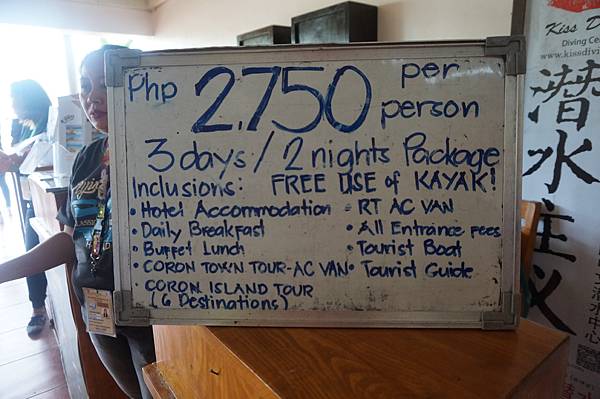 Php 2,750 per person
3 days / 2 nights Package
Inclusions: FREE USE of KAYAK!
• Hotel Accommodation
• Daily Breakfast
• Buffet Lunch
• CORON TOWN TOUR - AC VAN
• CORON ISLAND TOUR
(6 Destinations)
• RT AC VAN
• All Entrance fees
• Tourist Boat
• Tourist Guide
Kiss D
Diving Ce
www.kissdivi
潜水主义